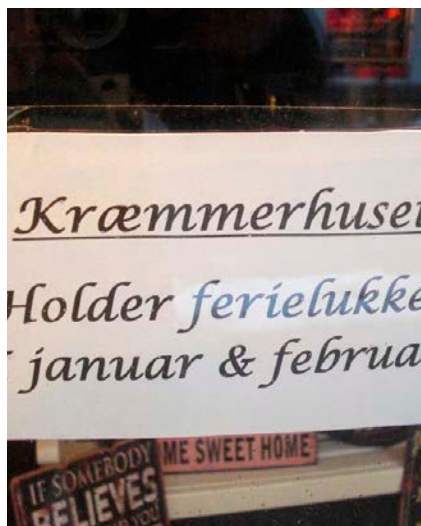 Kræmmerhuset
Holder ferielukke
i januar & februa
ME SWEET HOME
IF SOMEBODY
BELIEVES
YOU